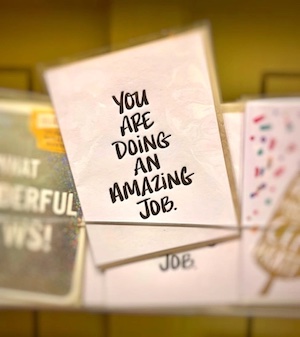 YOU
ARE
DOING
AN
AMAZING
JOB.
WHAT
DERFUL
WS!
JOB.